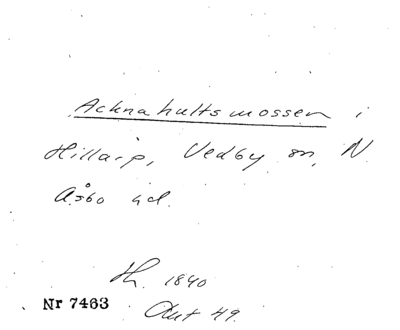 Acknahultsmossen i
Hillarp, Vedby sn, N
Åsbo hd.
Th. 1840
Nr 7463
Ant 49